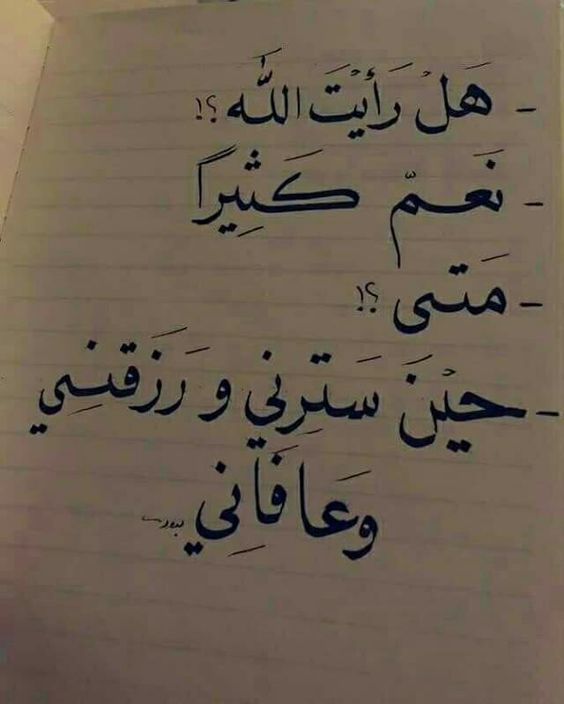 - هَلْ رَأَيْتَ اللَّه ؟!
- نَعَمْ كَثِيرًا
- مَتَى ؟!
- حِيْنَ سَتَرَنِي و رَزَقَنِي
وَعَافَانِي